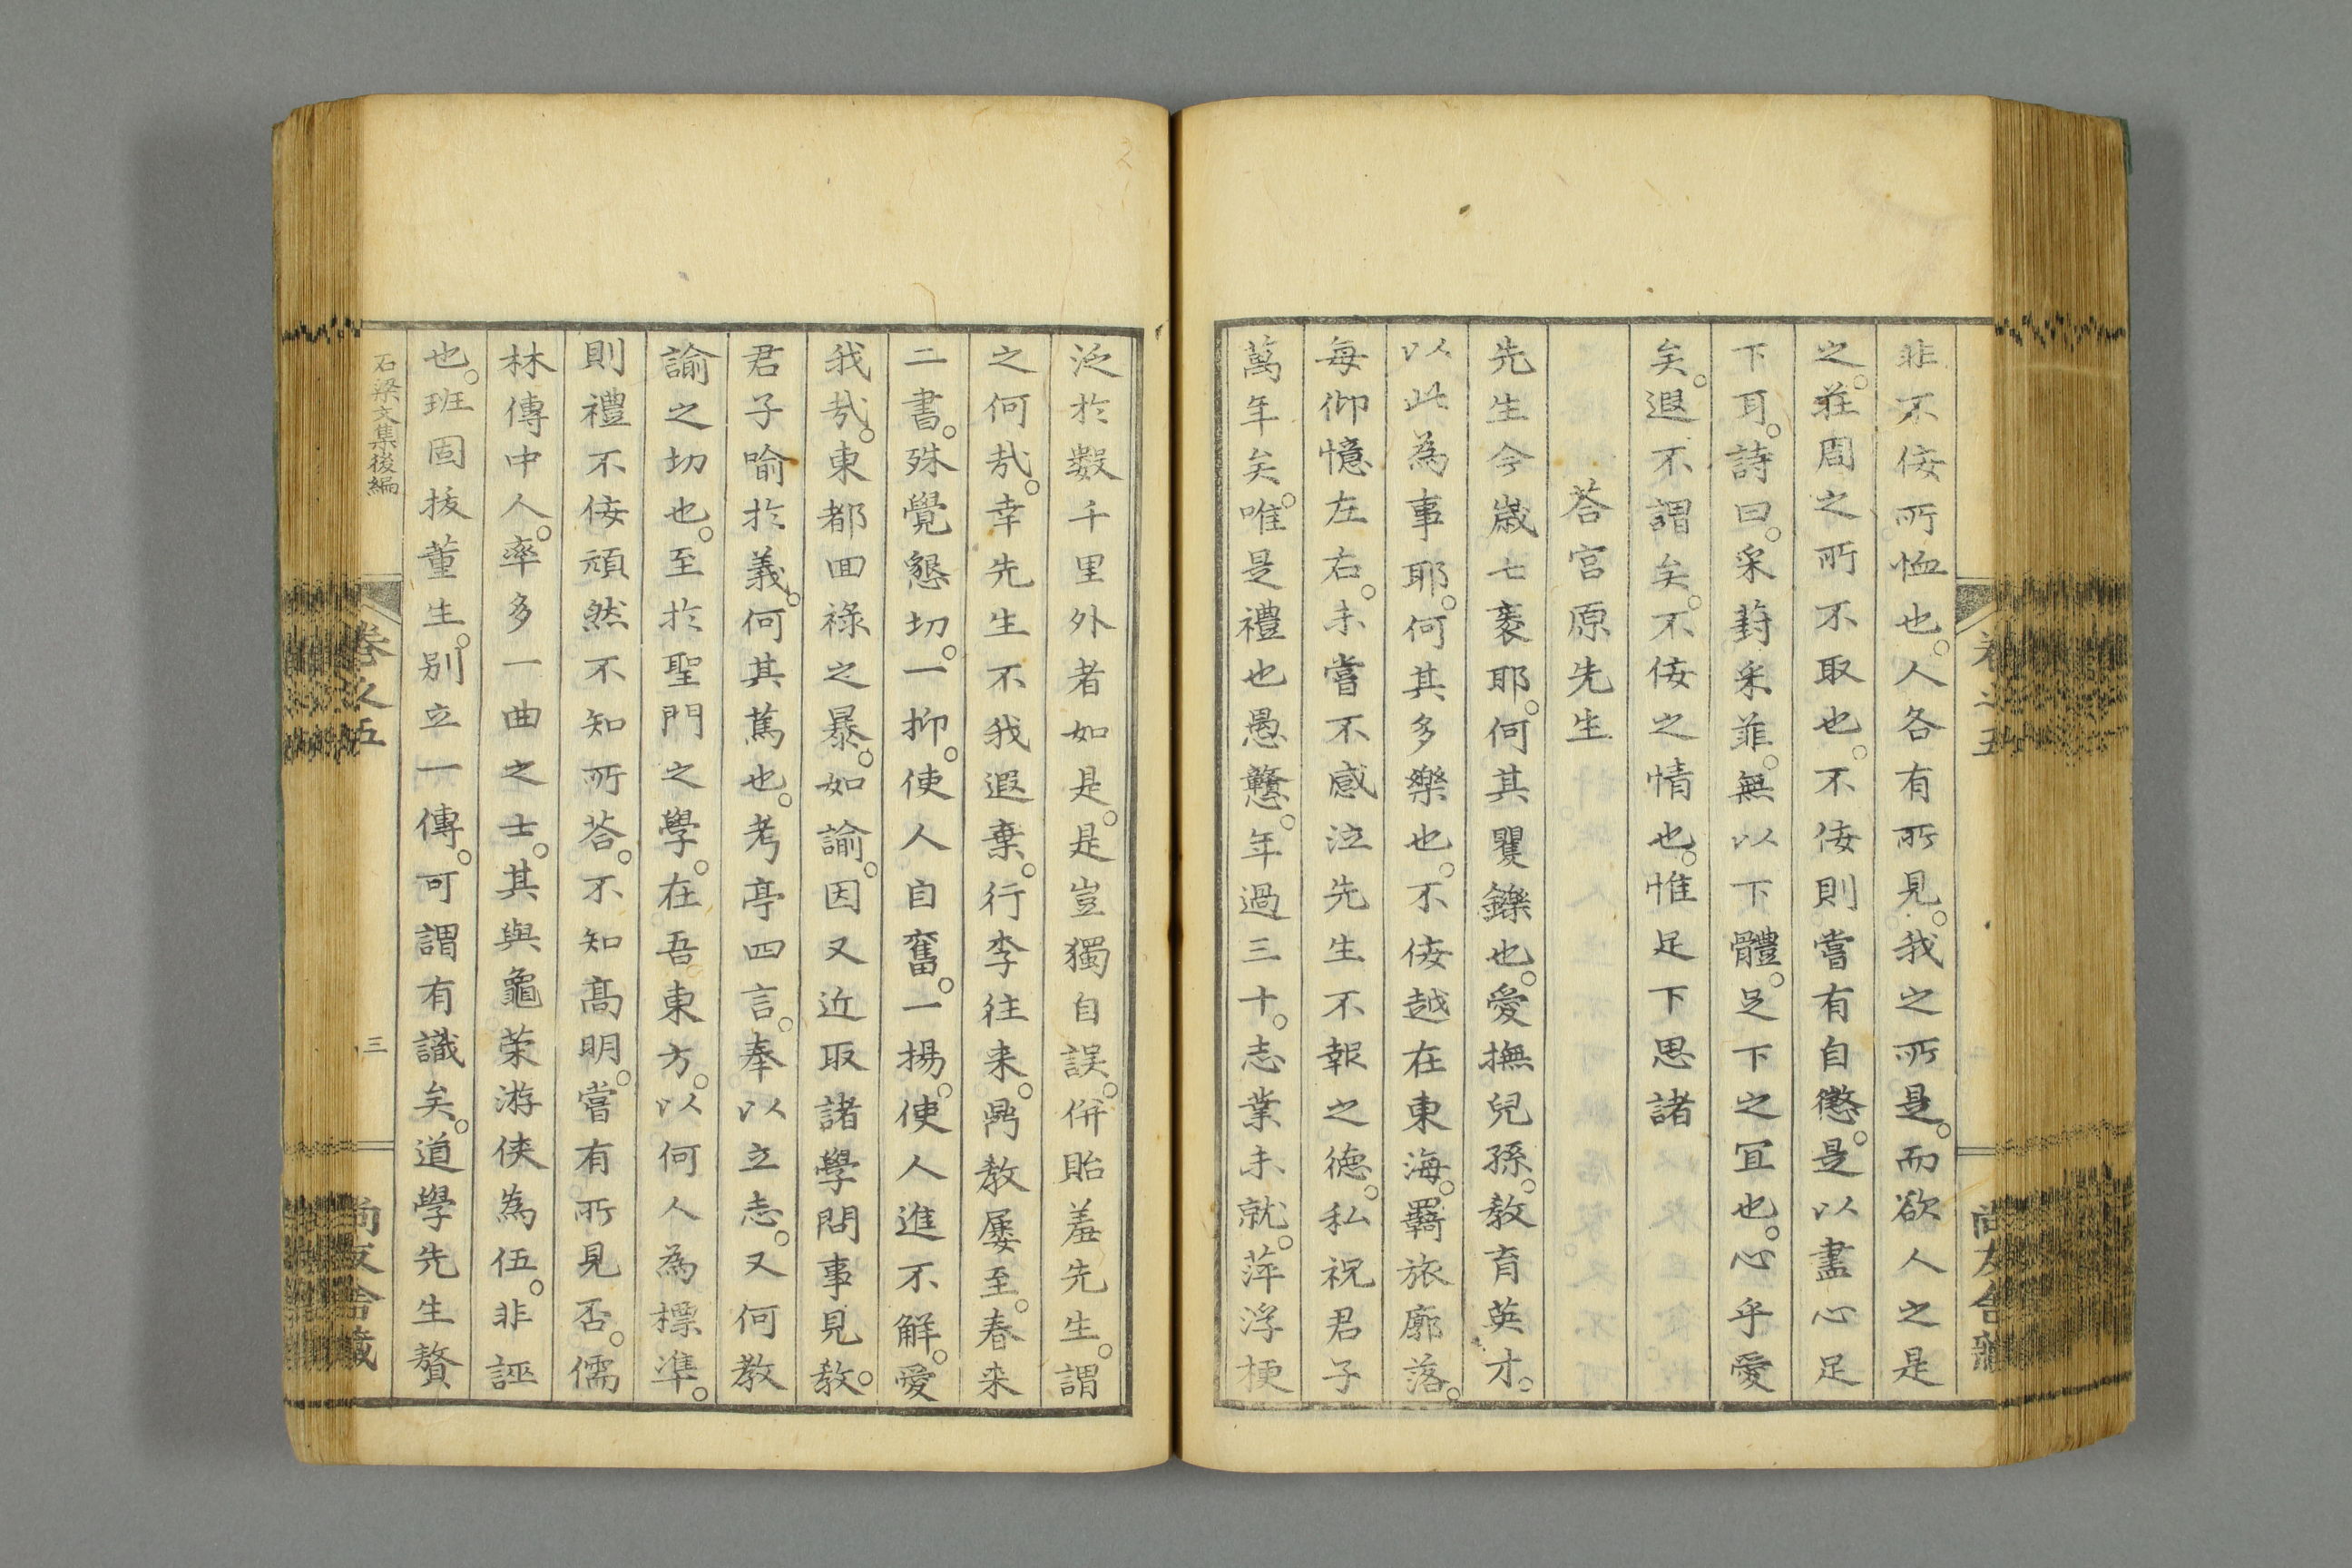 非不侫所恤也。人各有所見。我之所是。而欲人之是
之。莊周之所不取也。不侫則嘗有自懲。是以盡心足
下耳。詩曰。采葑采菲。無以下體。足下之冝也。心乎愛
矣。遐不謂矣。不侫之情也。惟足下思諸
荅宮原先生
先生今歳七袠耶。何其矍鑠也。愛撫兒孫。敎育英才。
以此為事耶。何其多樂也。不侫越在東海。羇旅廓落。
每仰憶左右。未嘗不感泣先生不報之德。私祝君子
萬年矣。唯是禮也愚戇。年過三十。志業未就。萍浮梗
泛於數千里外者如是。是豈獨自誤。併貽羞先生。謂
之何㢤。幸先生不我遐棄。行李往来。鼎敎屢至。春来
二書。殊覺懇切。一抑。使人自奮。一揚。使人進不解。愛
我㢤。東都囬祿之暴。如諭。因又近取諸學問事見敎。
君子喻於義。何其篤也。考亭四言。奉以立志。又何敎
諭之切也。至於聖門之學。在吾東方。以何人為標準。
則禮不侫頑然不知所荅。不知髙明。嘗有所見否。儒
林傳中人。率多一曲之士。其與龜䇿游侠為伍。非誣
也。班固拔董生。别立一傳。可謂有識矣。道學先生贅
石梁文集後編
卷之五
三
尚友舎藏